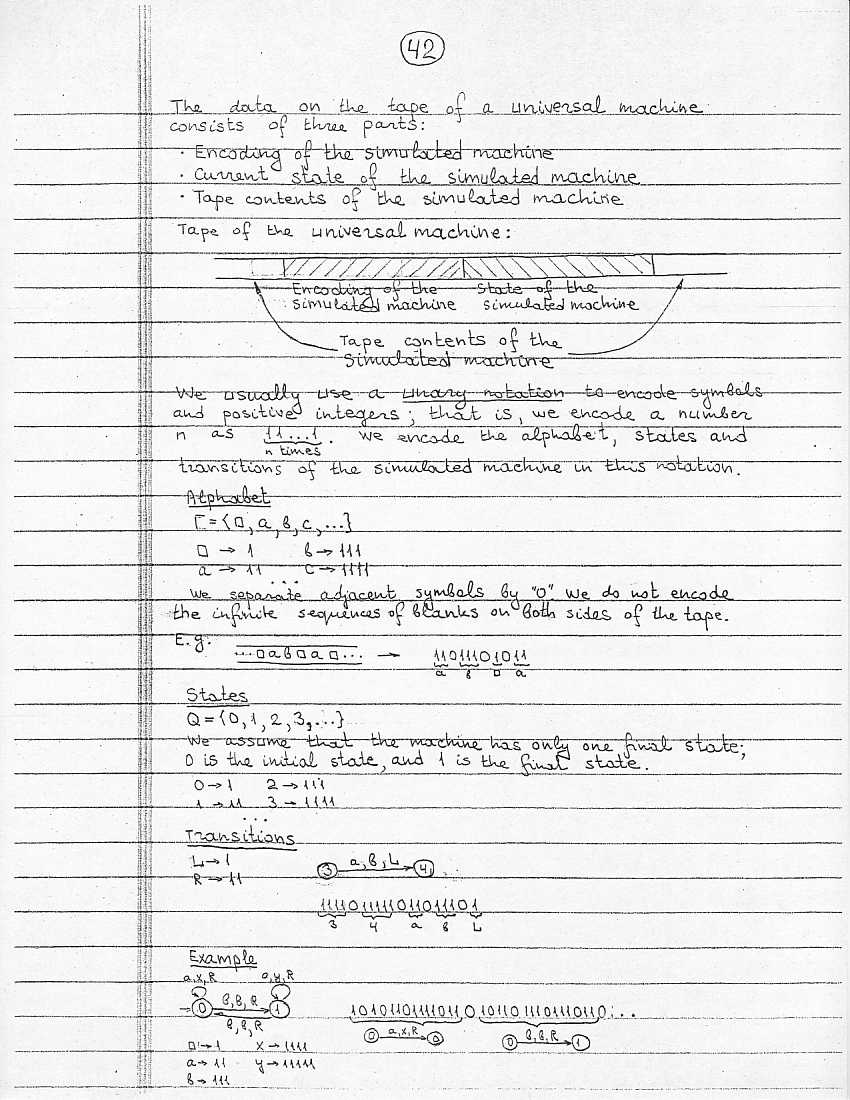 42
The data on the tape of a universal machine
consists of three parts:
· Encoding of the simulated machine
· Current state of the simulated machine
· Tape contents of the simulated machine
Tape of the universal machine:
Encoding of the State of the
simulated machine simulated machine
Tape contents of the
simulated machine
We usually use a unary notation to encode symbols
and positive integers; that is, we encode a number
n as 11...1. We encode the alphabet, states and
n times
transitions of the simulated machine in this notation.
Alphabet
Γ={□, a, b, c, ...}
□ → 1 b → 111
a → 11 c → 1111
...
We separate adjacent symbols by "0". We do not encode
the infinite sequences of blanks on both sides of the tape.
E.g:
...□ab□a□... → 11011101011
a b □ a
States
Q={0, 1, 2, 3, ...}
We assume that the machine has only one final state;
0 is the initial state, and 1 is the final state.
0→1 2→111
1→11 3→1111
...
Transitions
L→1
R→11
3 a, b, L 4
1111011111011011101
3 4 a b L
Example
a,x,R a,y,R
0 b,b,R 1
b,b,R
1010110111101101011011101110110...
0 a,x,R 0
0 b,b,R 1
□→1 x→1111
a→11 y→11111
b→111